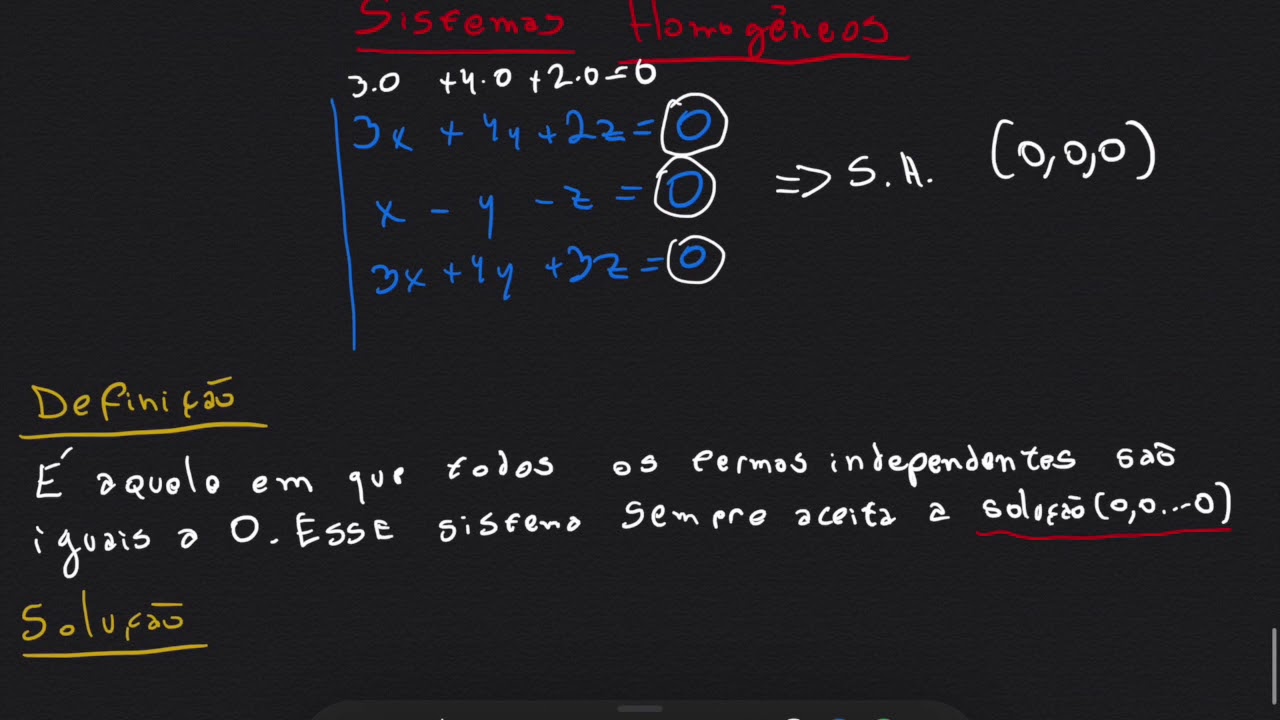 Sistemas Homogêneos
3.0 +4.0 +2.0=0
3x + 4y +2z = 0
x - y - z = 0 => S.A. (0,0,0)
3x + 4y +3z = 0
Definição
É aquele em que todos os termos independentes são
iguais a 0. ESSE sistema sempre aceita a solução (0,0...0)
Solução